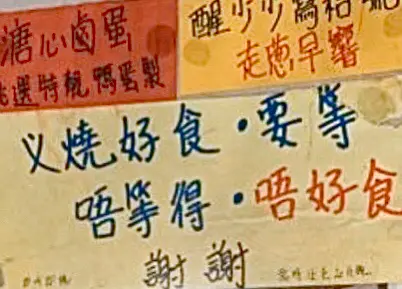 溏心鹵蛋
選特靚鴨蛋製
醒少少
走葱早響
义燒好食・要等
唔等得・唔好食
謝謝